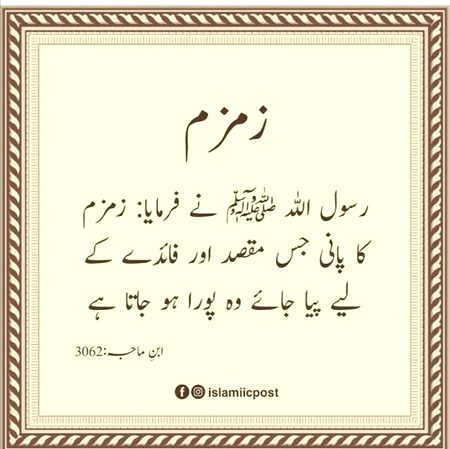 زمزم
رسول اللہ ﷺ نے فرمایا: زمزم
کا پانی جس مقصد اور فائدے کے
لیے پیا جائے وہ پورا ہو جاتا ہے
ابنِ ماجہ:3062
islamiicpost